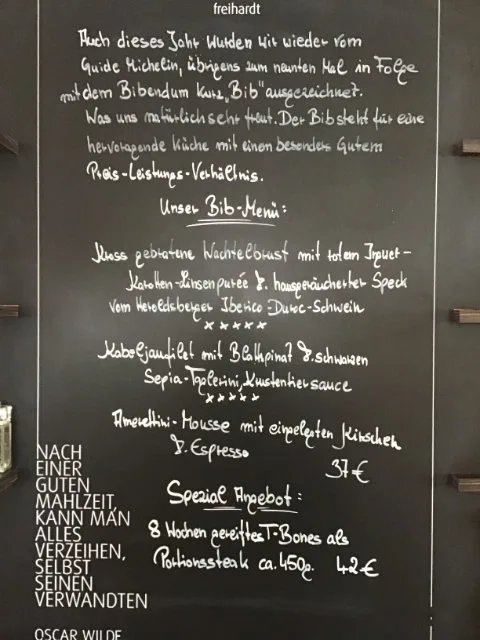 freihardt
Auch dieses Jahr wurden wir wieder vom
Guide Michelin, übrigens zum neunten Mal in Folge
mit dem Bibendum kurz „Bib" ausgezeichnet.
Was uns natürlich sehr freut. Der Bib steht für eine
hervorragende Küche mit einem besonders Gutem
Preis-Leistungs-Verhältnis.
Unser Bib-Menü:
Kross gebratene Wachtelbrust mit rotem Ingwer-
Karotten-Linsenpurée & hausgeräucherter Speck
vom Heroldsberger Iberico-Duroc-Schwein
xxxxx
Kabeljaufilet mit Blattspinat & schwarzen
Sepia-Taglerini, Krustentiersauce
xxxxx
Amarettini-Mousse mit eingelegten Kirschen
& Espresso
37€
Spezial Angebot:
8 Wochen gereiftes T-Bones als
Portionssteak ca. 450g. 42€
NACH
EINER
GUTEN
MAHLZEIT,
KANN MAN
ALLES
VERZEIHEN,
SELBST
SEINEN
VERWANDTEN
OSCAR WILDE